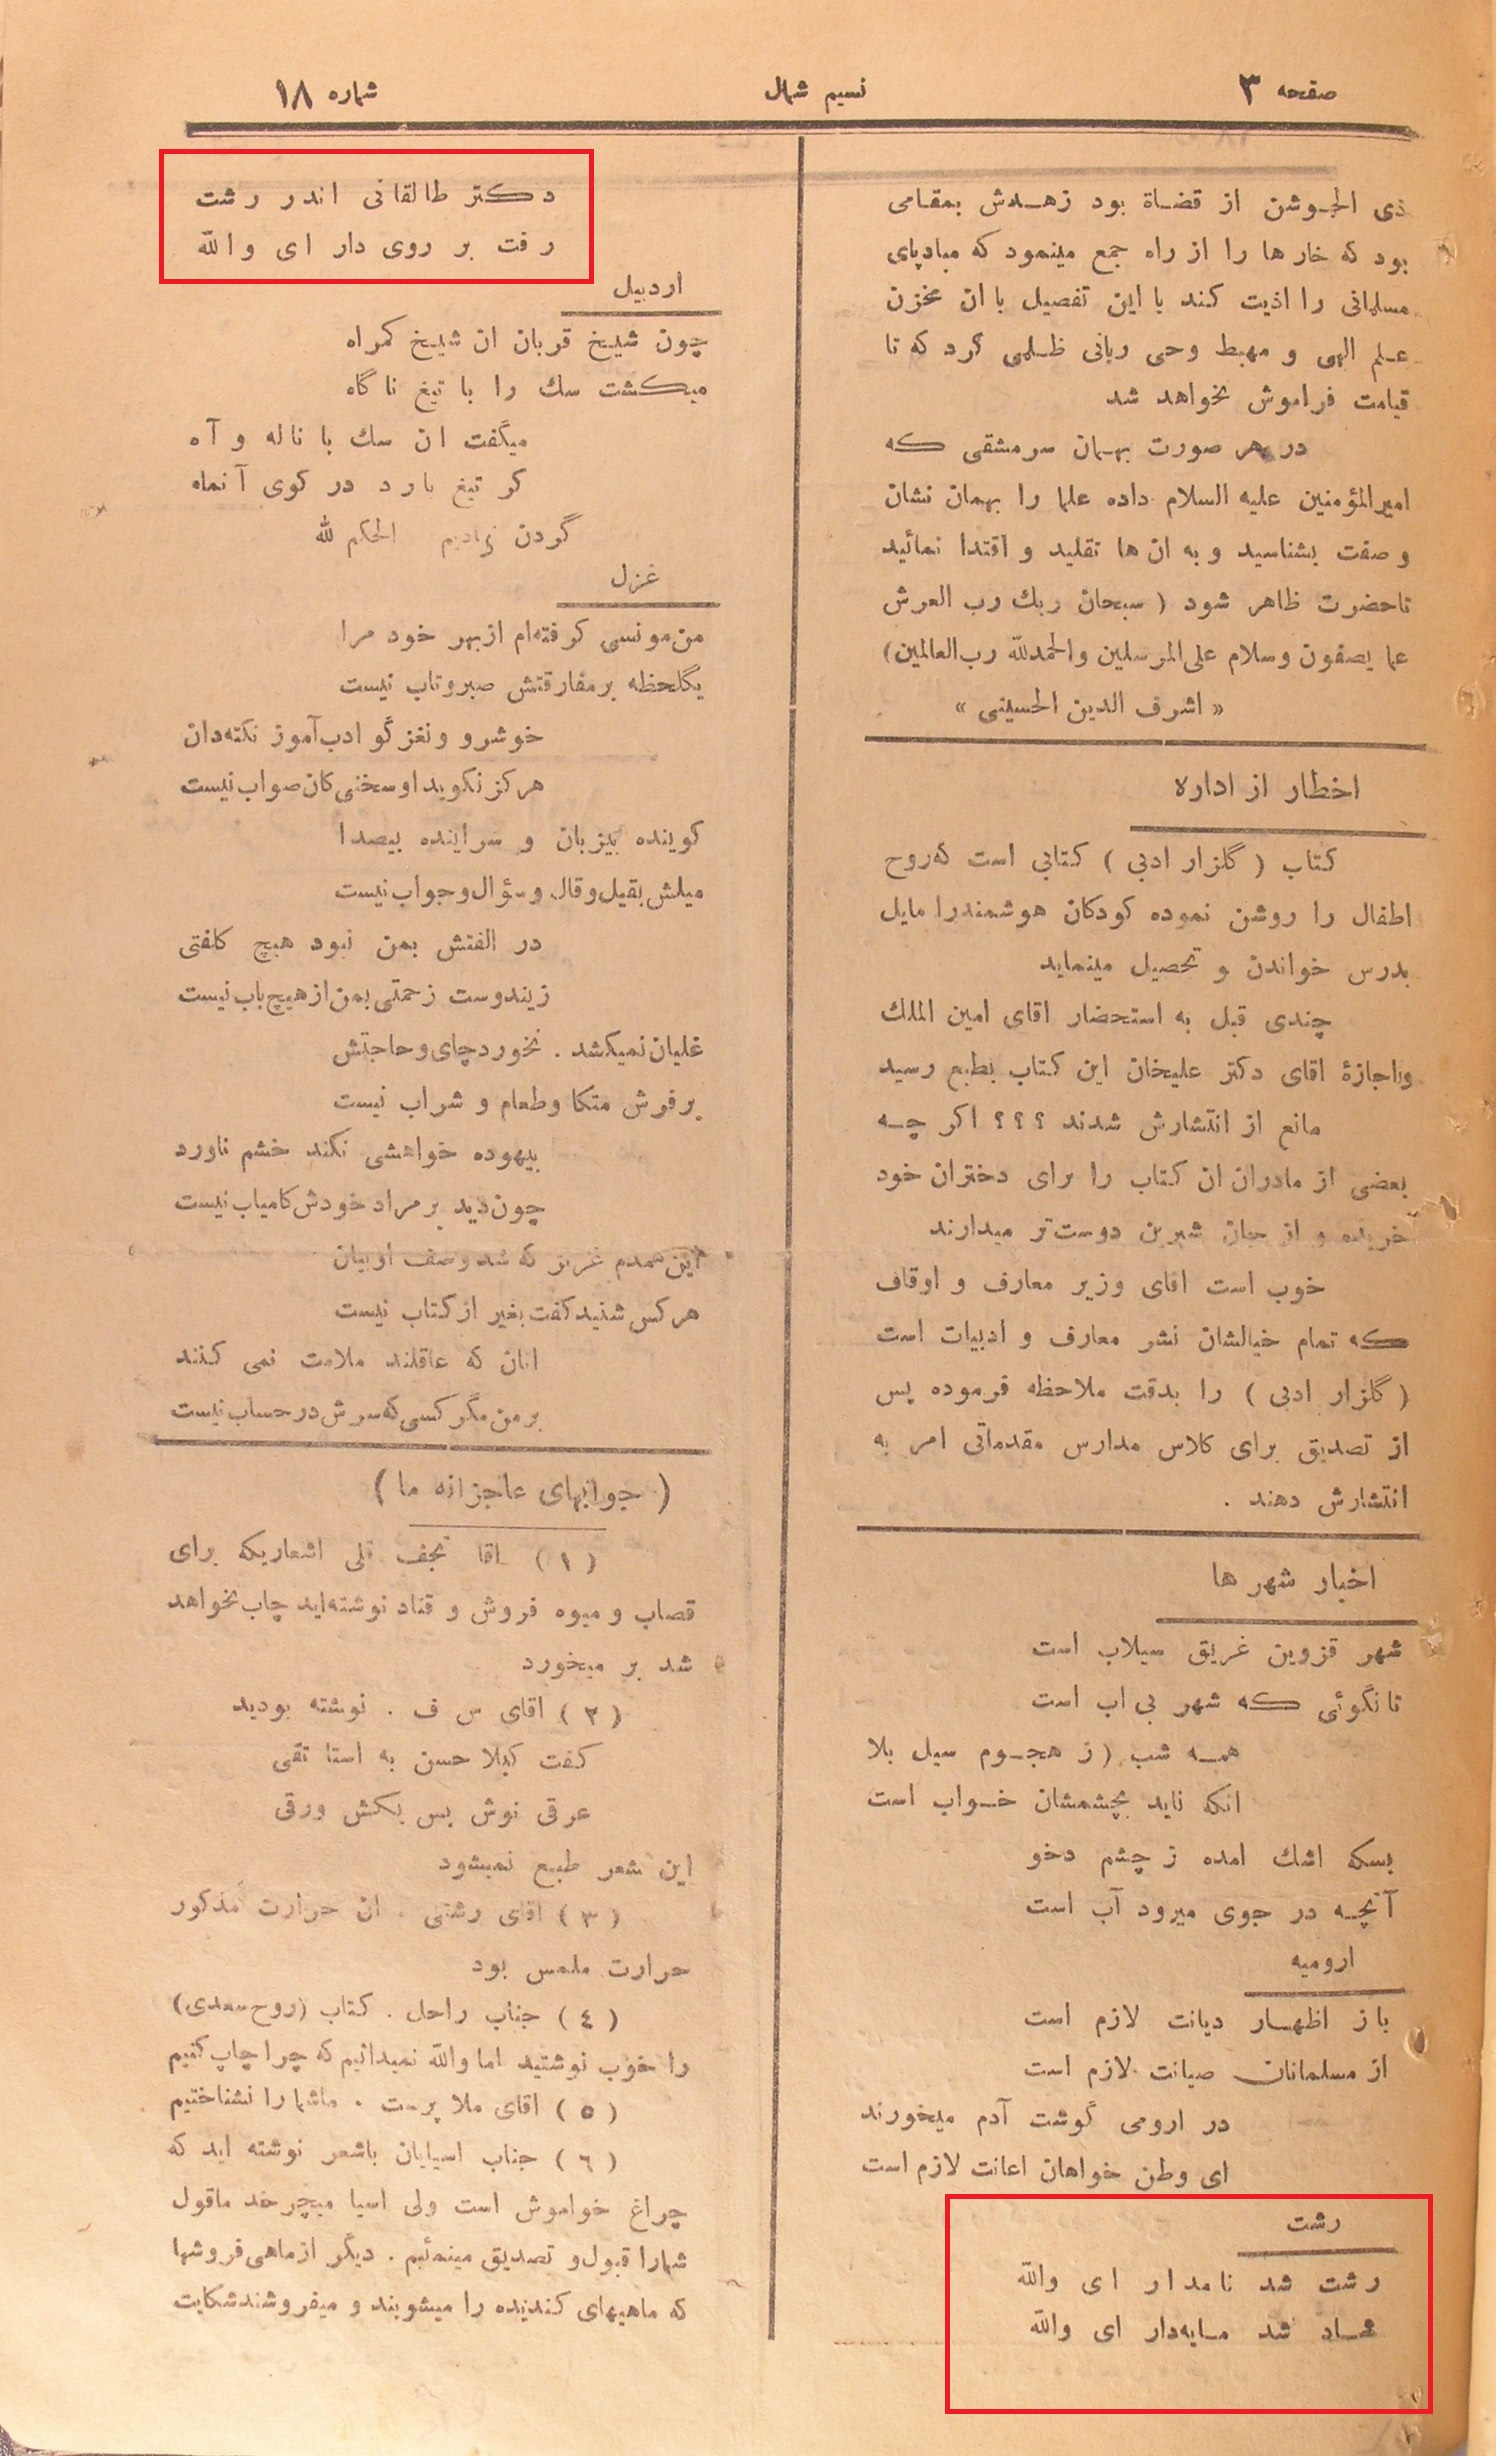 صفحه ۳
نسیم شمال
شماره ۱۸
ذی الجوشن از قضاة بود زهدش بمقامی
بود که خارها را از راه جمع مینمود که مبادپای
مسلمانی را اذیت کند با این تفصیل با ان مخزن
علم الهی و مهبط وحی ربانی ظلمی کرد که تا
قیامت فراموش نخواهد شد
در هر صورت بهمان سرمشقی که
امیرالمؤمنین علیه السلام داده علما را بهمان نشان
و صفت بشناسید و به ان ها تقلید و اقتدا نمائید
تاحضرت ظاهر شود ( سبحان ربك رب العرش
عما یصفون وسلام علی المرسلین والحمدلله رب العالمین)
« اشرف الدین الحسینی »
اخطار از اداره
کتاب ( گلزار ادبی ) کتابی است که روح
اطفال را روشن نموده کودکان هوشمندرا مایل
بدرس خواندن و تحصیل مینماید
چندی قبل به استحضار اقای امین الملك
واجازهٔ اقای دکتر علیخان این کتاب بطبع رسید
مانع از انتشارش شدند ؟ ؟ ؟ اکر چه
بعضی از مادران ان کتاب را برای دختران خود
خریده و از جان شیرین دوست‌تر میدارند
خوب است اقای وزیر معارف و اوقاف
که تمام خیالشان نشر معارف و ادبیات است
( گلزار ادبی ) را بدقت ملاحظه فرموده پس
از تصدیق برای کلاس مدارس مقدماتی امر به
انتشارش دهند .
اخبار شهر ها
شهر قزوین غریق سیلاب است
تا نگوئی که شهر بی اب است
همه شب (ز هجوم سیل بلا
انکه ناید بچشمشان خواب است
بسکه اشك امده ز چشم دخو
آنچه در جوی میرود آب است
ارومیه
باز اظهار دیانت لازم است
از مسلمانان صیانت لازم است
در ارومی گوشت آدم میخورند
ای وطن خواهان اعانت لازم است
رشت
رشت شد نامدار ای والله
شد مایه‌دار ای والله
دکتر طالقانی اندر رشت
رفت بر روی دار ای والله
اردبیل
چون شیخ قربان ان شیخ کمراه
میکشت سك را با تیغ ناگاه
میگفت ان سك با ناله و آه
کر تیغ بارد در کوی آنماه
گردن نهادیم الحکم لله
غزل
من مونسی کرفته‌ام از بهر خود مرا
یکلحظه بر مفارقتش صبر و تاب نیست
خوشرو و نغزگو ادب آموز نکته‌دان
هرکز نکوید او سخنی کان صواب نیست
کوینده بیزبان و سراینده بیصدا
میلش بقیل و قال و سؤال و جواب نیست
در الفتش بمن نبود هیچ کلفتی
زیندوست زحمتی بمن از هیچ باب نیست
غلیان نمیکشد . نخورد چای و حاجتش
بر فرش متکا و طعام و شراب نیست
بیهوده خواهشی نکند خشم ناورد
چون دید بر مراد خودش کامیاب نیست
این همدم عزیز که شد وصف او بیان
هرکس شنید کفت بغیر از کتاب نیست
انان که عاقلند ملامت نمی کنند
بر من مگر کسی که سرش در حساب نیست
( جوابهای عاجزانه ما )
( ۱ ) اقا نجف قلی اشعاریکه برای
قصاب و میوه فروش و قناد نوشته‌اید چاپ نخواهد
شد بر میخورد
( ۲ ) اقای س ف . نوشته بودید
کفت کبلا حسن به استا تقی
عرقی نوش بس بکش ورقی
این شعر طبع نمیشود
( ۳ ) اقای رشتی . ان حرارت مذکور
حرارت ملمس بود
( ٤ ) جناب راحل . کتاب (روح سعدی)
را خوب نوشتید اما والله نمیدانیم که چرا چاپ کنیم
( ٥ ) اقای ملا پرست . ماشما را نشناختیم
( ٦ ) جناب اسیابان باشعر نوشته اید که
چراغ خاموش است ولی اسیا میچرخد ماقول
شمارا قبول و تصدیق مینمائیم . دیگر از ماهی فروشها
که ماهیهای کندیده را میشویند و میفروشند شکایت